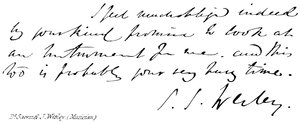 I feel much obliged indeed
by your kind promise to look at
an Instrument for me. and this
too is probably your very busy time.
S. S. Wesley.
Samuel S. Wesley (Musician)